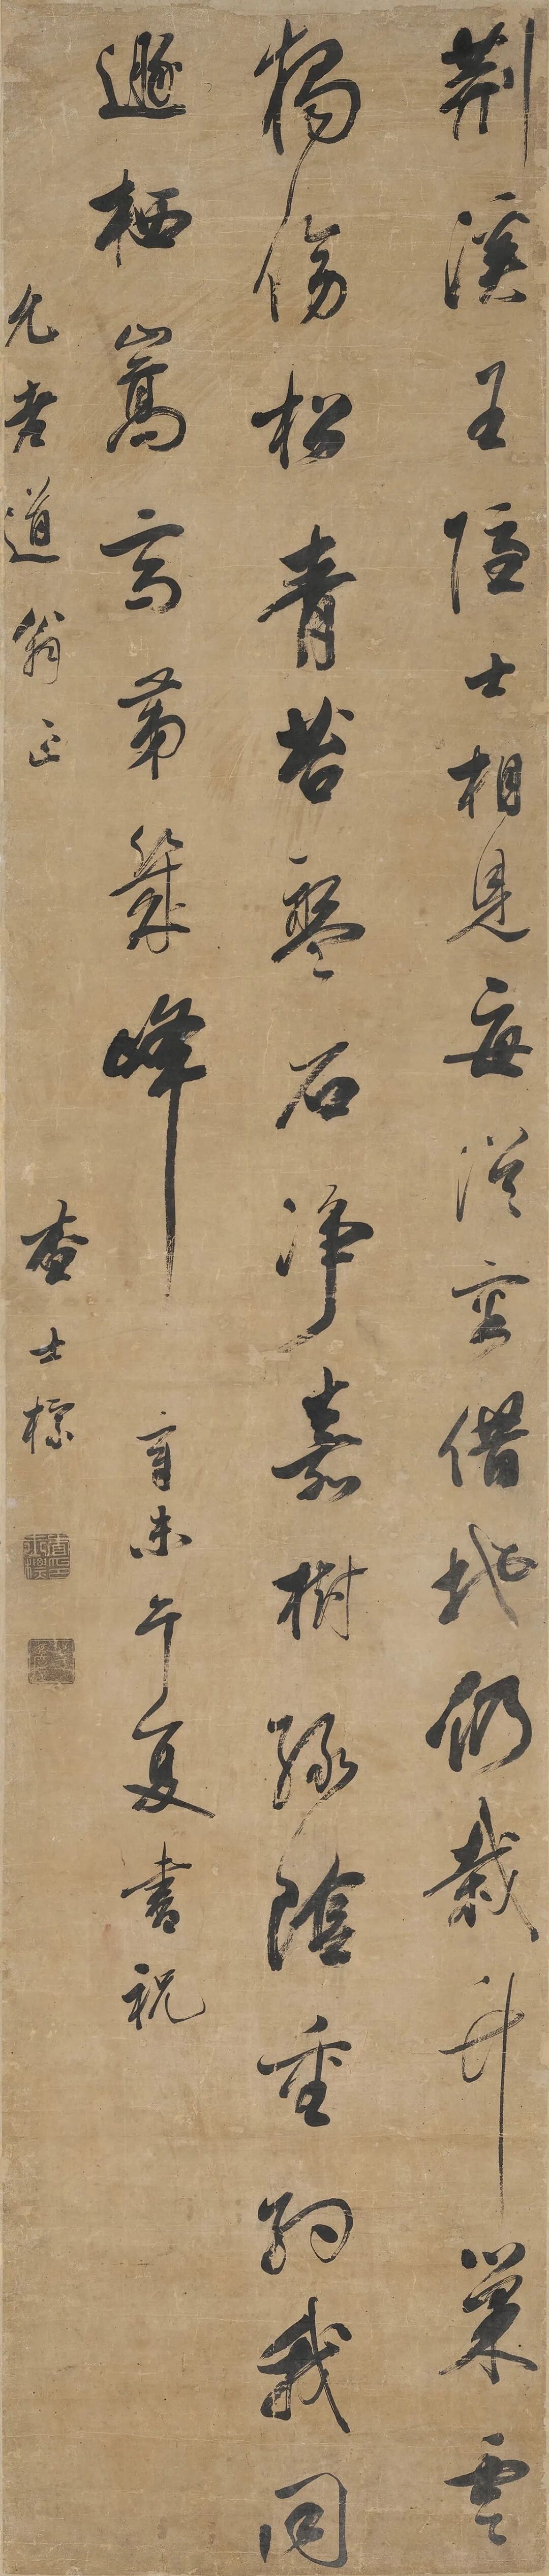 荆溪王隱士相見每從容借地仍栽竹巢雲
獨傍松青苔盤石淨嘉樹綠陰重約我同
遯栖嵩高第幾峰 辛未午夏書祝
允老道翁正 查士標